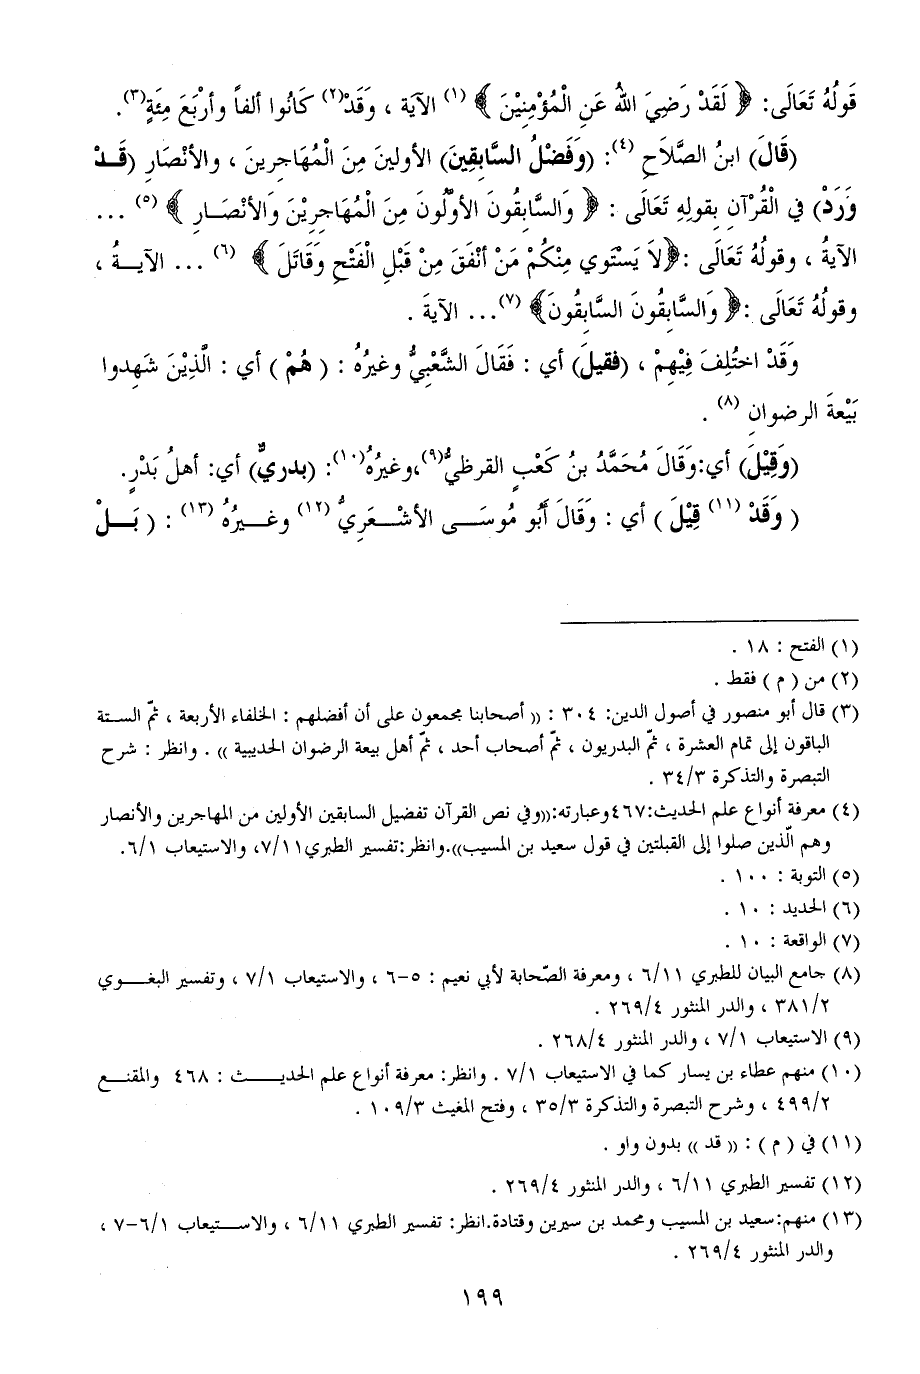 قَولُهُ تَعَالَى: ﴿ لَقَدْ رَضِيَ اللهُ عَنِ الْمُؤْمِنِيْنَ ﴾ (١) الآيَة ، وَقَدْ(٢) كَانُوا ألفاً وأرْبَعَ مِئَةٍ(٣).
(قَالَ) ابنُ الصَّلَاحِ (٤): (وَفَضْلُ السَّابِقِينَ) الأولينَ مِنَ الْمُهَاجِرينَ ، والأنْصَارِ (قَدْ
وَرَدْ) في الْقُرْآنِ بِقولِهِ تَعَالَى : ﴿ وَالسَّابِقُونَ الأوَّلُونَ مِنَ الْمُهَاجِرِيْنَ وَالأنْصَارِ ﴾ (٥) ...
الآيَةُ ، وقولُهُ تَعَالَى :﴿لاَ يَسْتَوِي مِنْكُمْ مَنْ أنْفَقَ مِنْ قَبْلِ الْفَتْحِ وَقَاتَلَ ﴾ (٦) ... الآيَةُ ،
وقولُهُ تَعَالَى :﴿ وَالسَّابِقُونَ السَّابِقُونَ﴾ (٧)... الآيةَ .
وَقَدْ اختُلِفَ فِيْهِمْ ، (فقيلَ) أي : فَقَالَ الشَّعْبِيُّ وغيرُهُ : ( هُمْ ) أي : الَّذِيْنَ شَهِدوا
بَيْعَةَ الرضوانِ (٨) .
(وَقِيْلَ) أي:وَقَالَ مُحَمَّدُ بنُ كَعْبٍ القرظيُّ(٩)،وغيرُهُ(١٠): (بدريٌّ) أي: أهلُ بَدْرٍ.
( وَقَدْ (١١) قِيْلَ ) أي : وَقَالَ أَبُو مُوسَى الأشْعَرِيُّ (١٢) وغيرُهُ (١٣) : ( بَلْ
(١) الفتح : ١٨ .
(٢) من ( م ) فقط .
(٣) قال أبو منصور في أصول الدين: ٣٠٤ : (( أصحابنا مجمعون على أن أفضلهم : الخلفاء الأربعة ، ثمّ الستة
الباقون إلى تمام العشرة ، ثمّ البدريون ، ثمّ أصحاب أحد ، ثمّ أهل بيعة الرضوان الحديبية )) . وانظر : شرح
التبصرة والتذكرة ٣٤/٣ .
(٤) معرفة أنواع علم الحديث:٤٦٧وعبارته:((وفي نص القرآن تفضيل السابقين الأولين من المهاجرين والأنصار
وهم الّذين صلوا إلى القبلتين في قول سعيد بن المسيب)).وانظر:تفسير الطبري٧/١١، والاستيعاب ٦/١.
(٥) التوبة : ١٠٠ .
(٦) الحديد : ١٠ .
(٧) الواقعة : ١٠ .
(٨) جامع البيان للطبري ٦/١١ ، ومعرفة الصّحابة لأبي نعيم : ٥-٦ ، والاستيعاب ٧/١ ، وتفسير البغوي
٣٨١/٢ ، والدر المنثور ٢٦٩/٤ .
(٩) الاستيعاب ٧/١ ، والدر المنثور ٢٦٨/٤ .
(١٠) منهم عطاء بن يسار كما في الاستيعاب ٧/١ . وانظر: معرفة أنواع علم الحديث : ٤٦٨ والمقنع
٤٩٩/٢ ، وشرح التبصرة والتذكرة ٣٥/٣ ، وفتح المغيث ١٠٩/٣ .
(١١) في ( م ) : (( قد )) بدون واو .
(١٢) تفسير الطبري ٦/١١ ، والدر المنثور ٢٦٩/٤ .
(١٣) منهم:سعيد بن المسيب ومحمد بن سيرين وقتادة.انظر: تفسير الطبري ٦/١١ ، والاستيعاب ٦/١-٧ ،
والدر المنثور ٢٦٩/٤ .
١٩٩